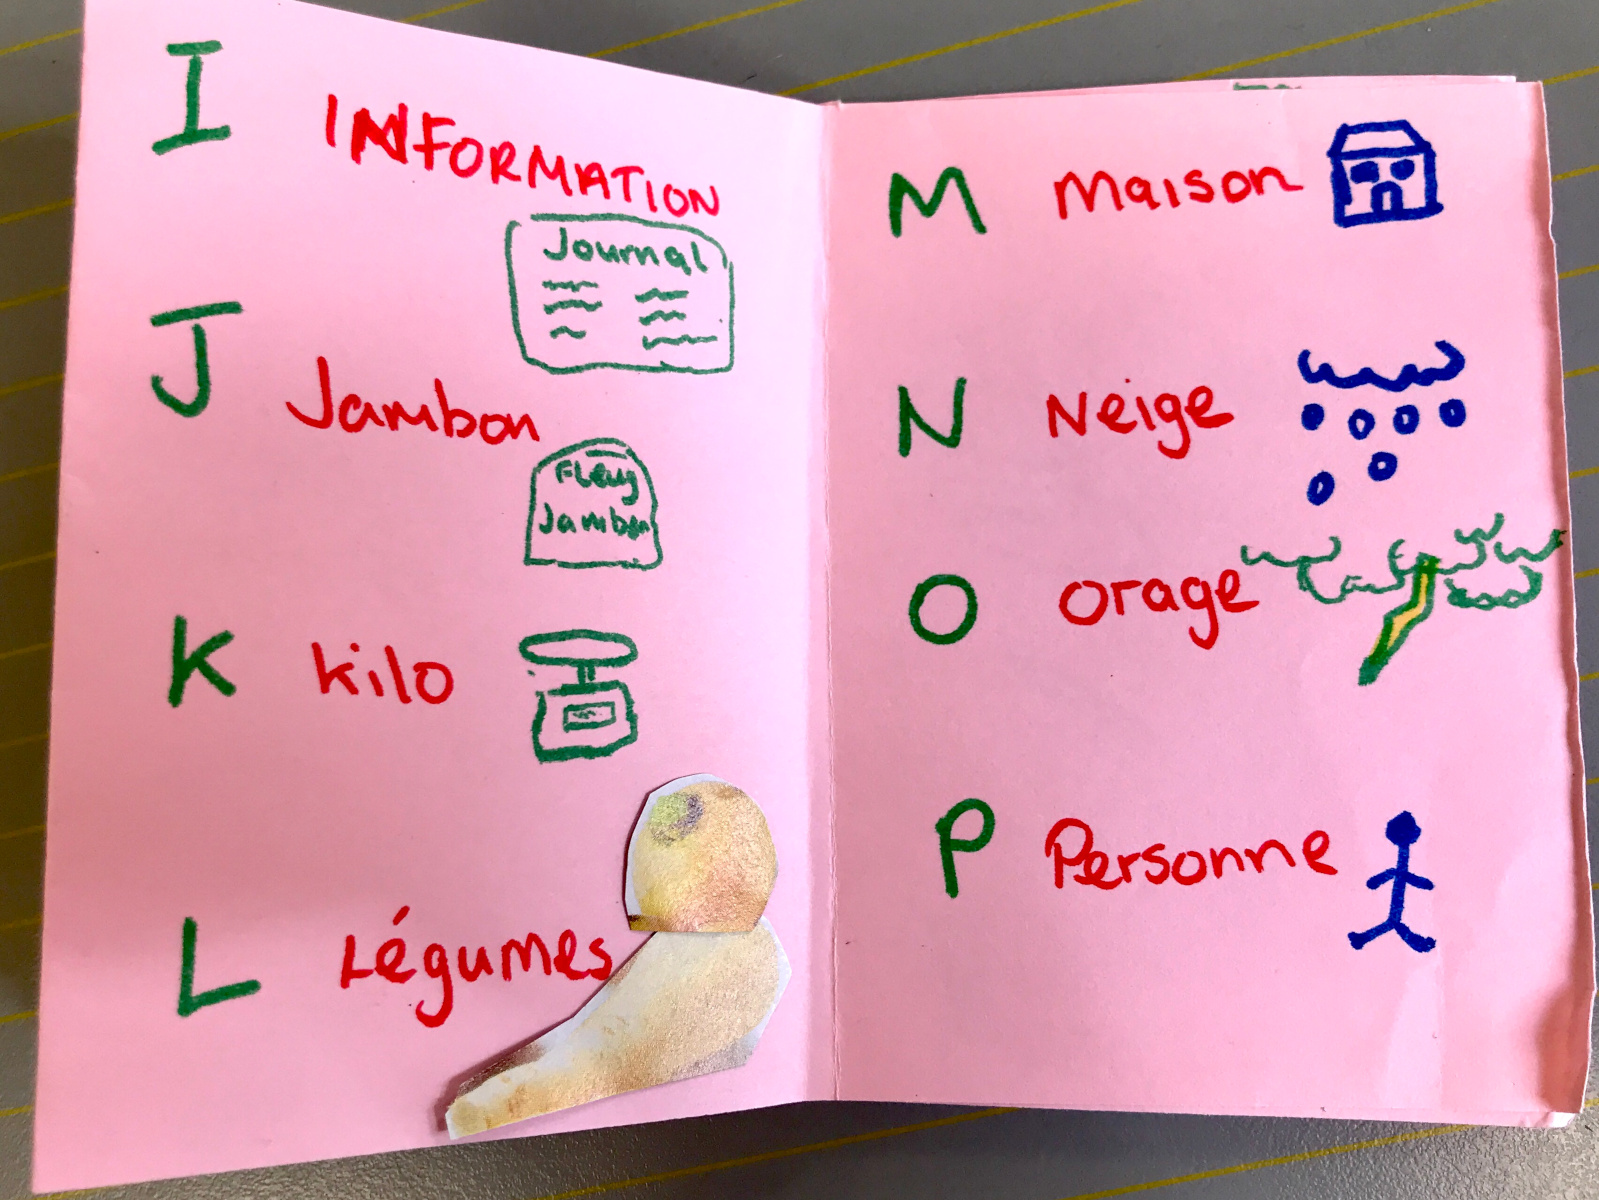 I
INFORMATION
Journal
J
Jambon
Fleury
Jambon
K
kilo
L
Légumes
M
Maison
N
Neige
O
orage
P
Personne